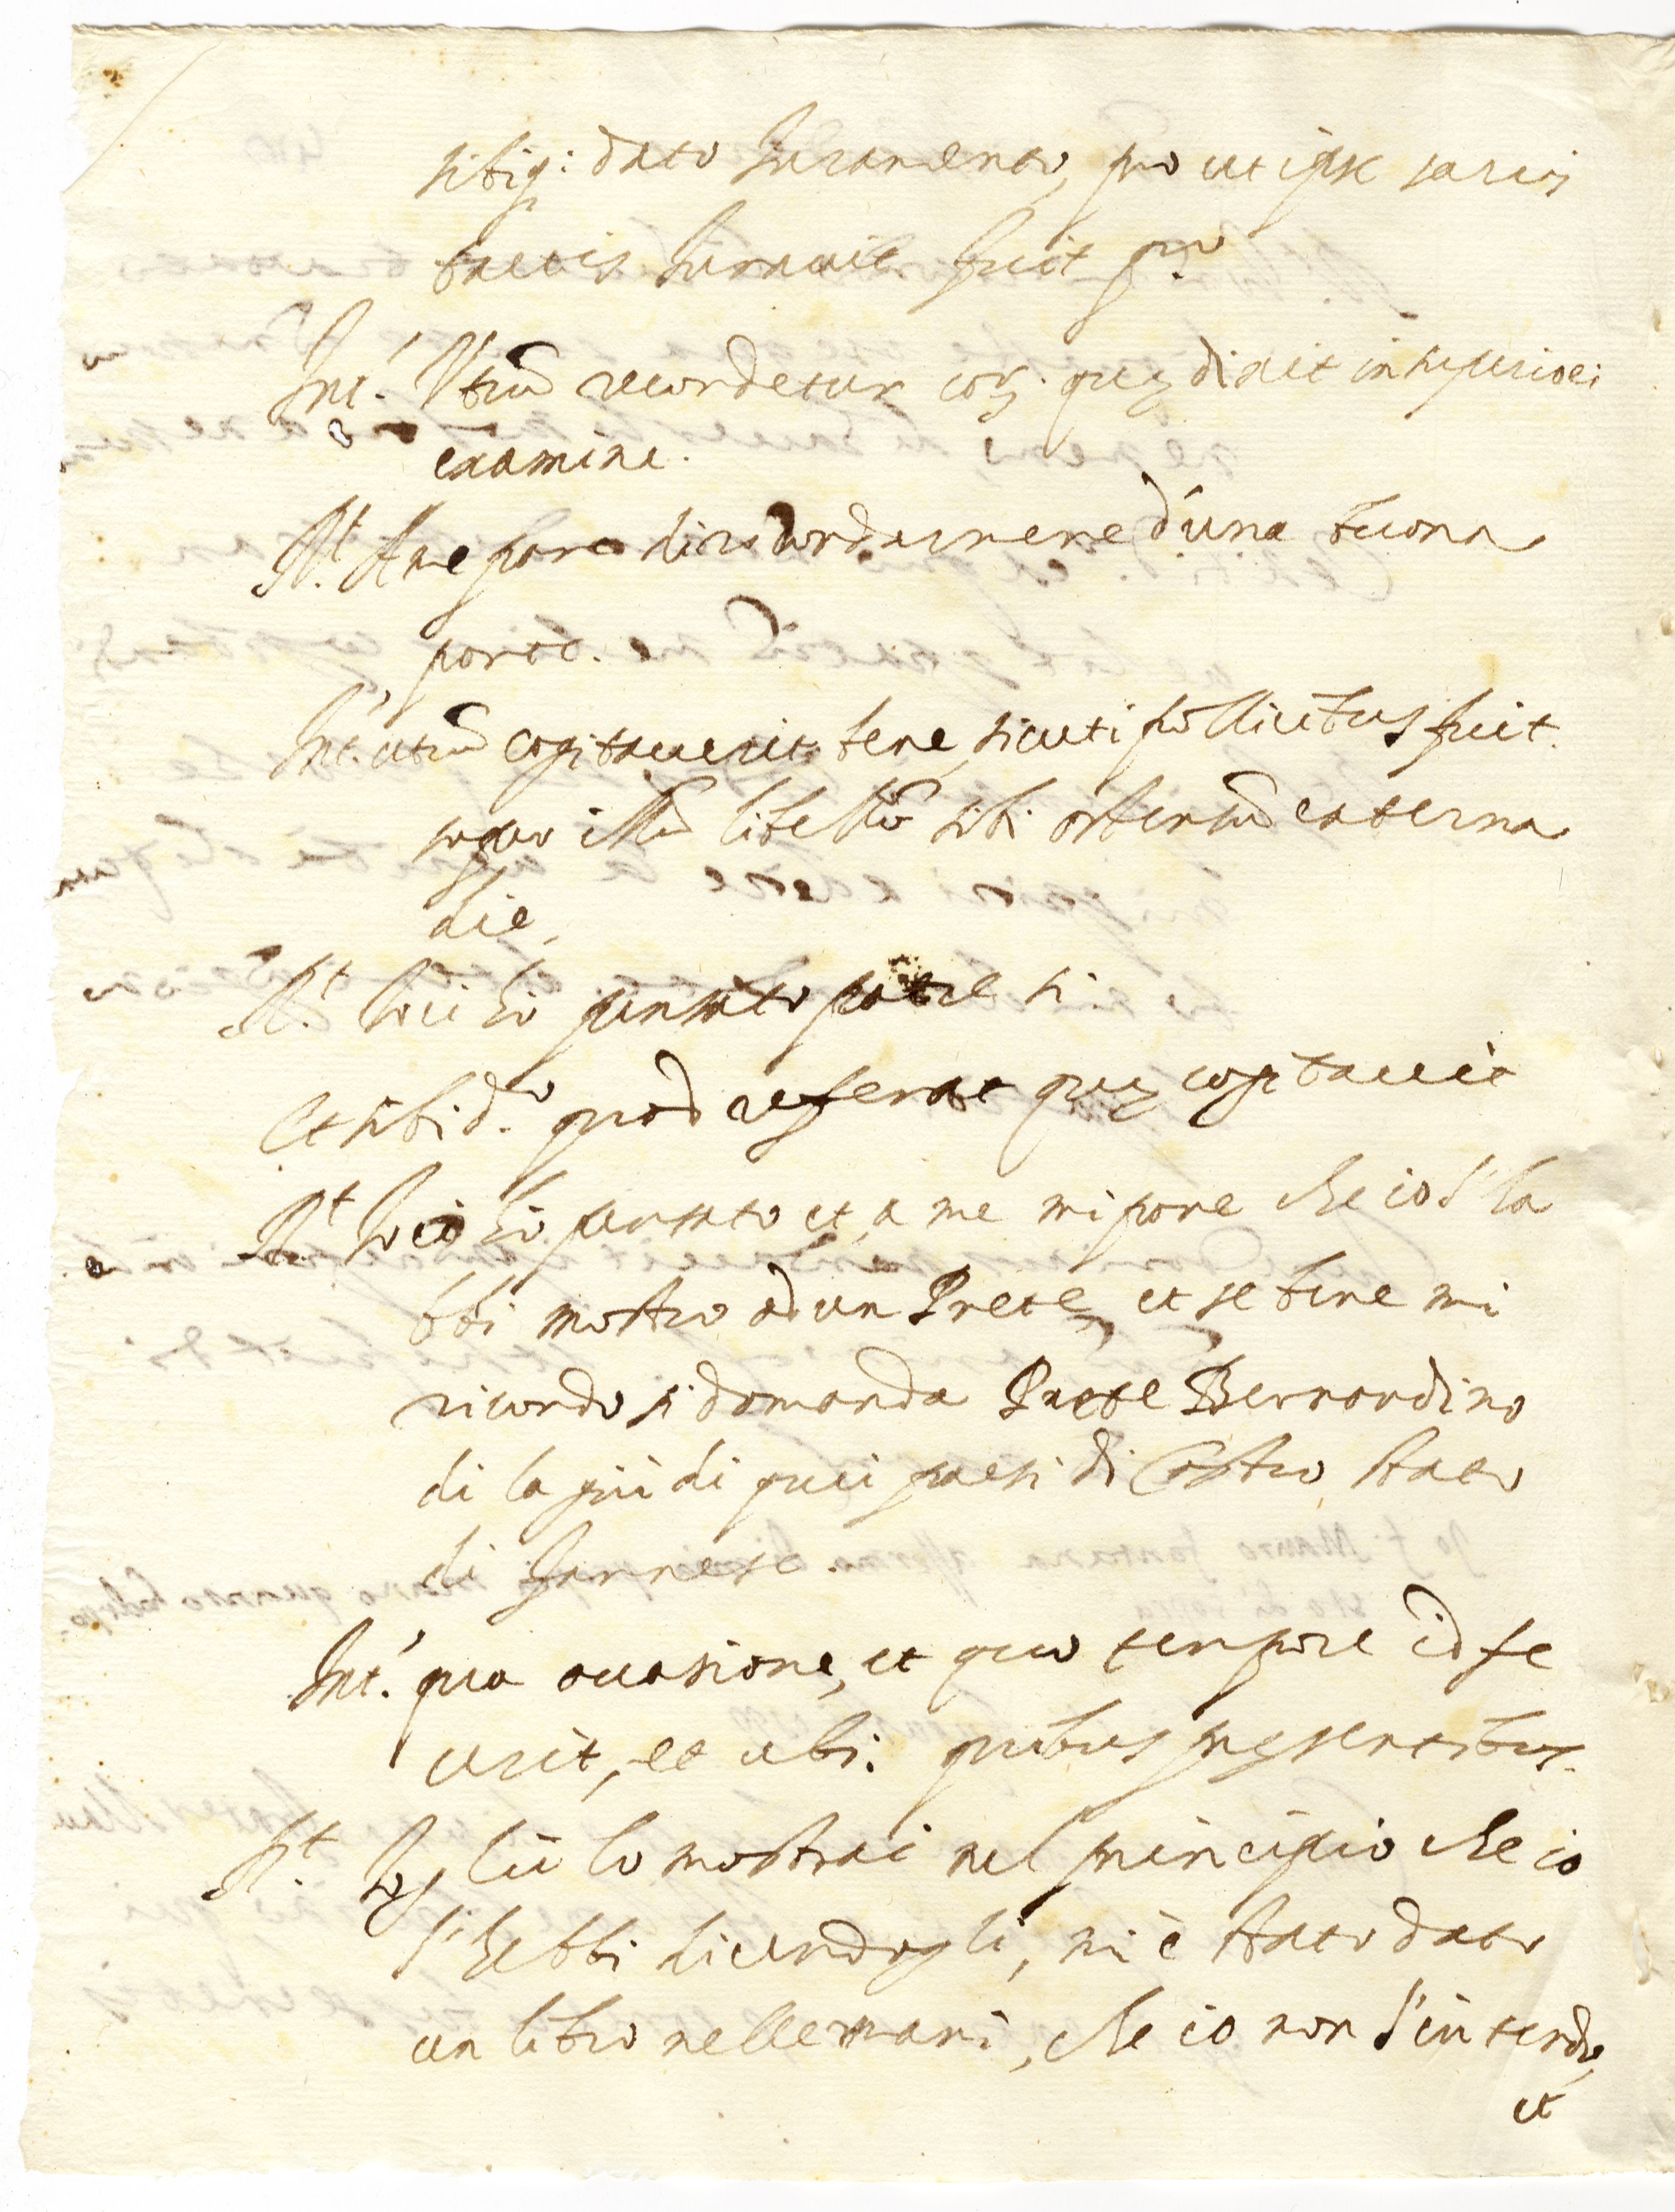 sibiq: dato Iuramento, pro ut ipse sacris
tactis Iuravit fuit pº
Int.' Utrũ recordetur eorz quę dixit in superiori
examine.
Rt. A me pare di ricordarmene d'una buona
parte.
Int.' utrũ cogitaverit bene, sicuti pollicitus fuit
super illũ libellũ sibi ostensũ externa
die,
Rt. Io ci hò pensato padre si.
Et sibi d.º quod referat quę cogitavit
Rt. Io ci hò pensato et, a me mi pare che io l'ha
bbi mostro ad un Prete, et se bene mi
ricordo si domanda Prete Bernardino
di la giù di quei paesi di Castro, stato
di Farnese.
Int.' qua occasione, et quo tempore id fe
cerit, et ubi. quibus pręsentibus.
Rt. Io gliè lo mostrai nel principio che io
l'hebbi dicendogli, mi è stato dato
un libro nelle mani, che io non l'intendo,
et